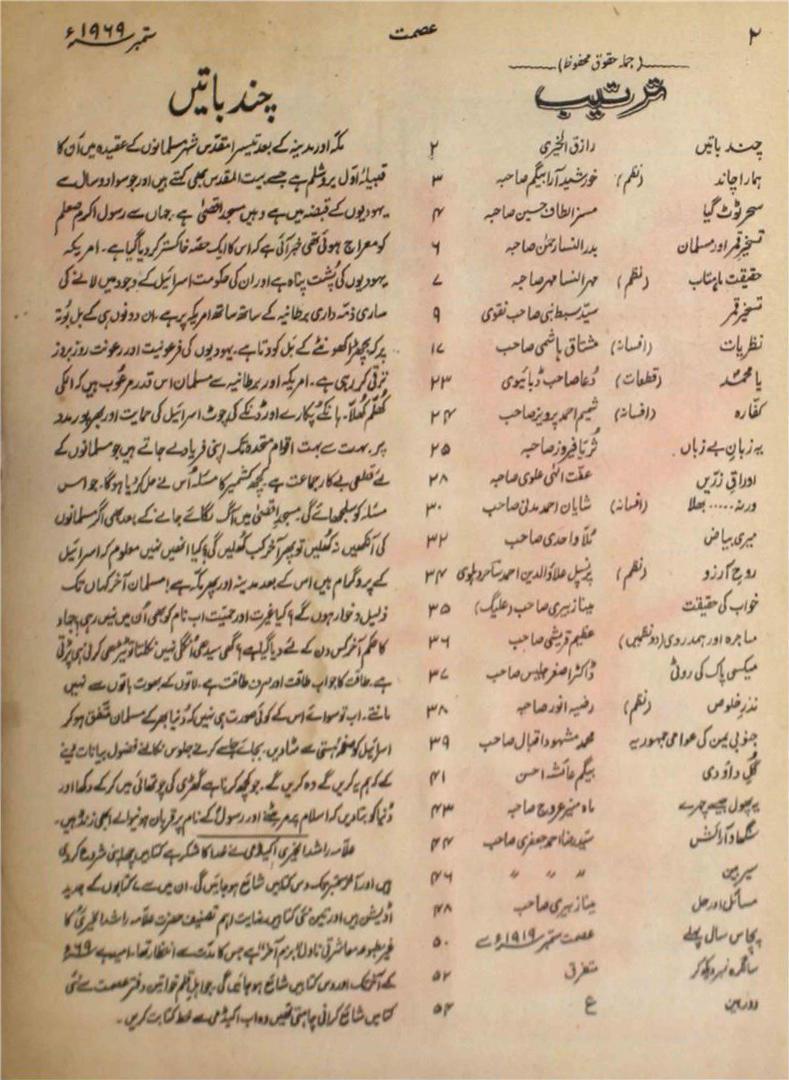 ۲
عصمت
ستمبر ۱۹۶۹ء
(جملہ حقوق محفوظ)
ترتیب
چند باتیں رازق الخیری ۲
ہمارا چاند (نظم) خورشید آرا بیگم صاحبہ ۳
سحر ٹوٹ گیا مسز الطاف حسین صاحبہ ۴
تسخیرِ قمر اور مسلمان بدر النساء صاحبہ ۶
حقیقت ماہتاب (نظم) مہر النسا مہر صاحبہ ۷
تسخیر قمر سیّد سبط نبی صاحب نقوی ۹
نظریات (افسانہ) مشتاق ہاشمی صاحب ۱۷
یا محمدؐ (قطعات) دُعا صاحب ڈبائیوی ۲۳
کفّارہ (افسانہ) شمیم احمد پرویز صاحب ۲۴
یہ زبانِ بے زباں ثُریّا فیروز صاحبہ ۲۵
اوراقِ زرّیں عفّت الٰہی علوی صاحبہ ۲۸
ورنہ ..... بھلا (افسانہ) شایان احمد مدنی صاحب ۳۰
میری بیاض مُلّا واحدی صاحب ۳۲
روحِ آرزو (نظم) پرنسپل علاؤالدین احمد شاحر دہلوی ۳۴
خواب کی حقیقت مینا زبیری صاحب (علیگ) ۳۵
ماجرہ اور ہمدردی (دو نظمیں) عظیم قریشی صاحب ۳۶
میکسی پاک کی روٹی ڈاکٹر اصغر جلیس صاحب ۳۷
نذرِ خلوص (نظم) رضیہ انور صاحبہ ۳۸
جنوبی یمن کی عوامی جمہوریہ محمد مشہود اقبال صاحب ۳۹
گلِ داؤدی بیگم عائشہ احسن ۴۱
یہ پھول جیسے چہرے ماہ منیر عروج صاحبہ ۴۳
سنگھار و آرائش سیّد رضا احمد جعفری صاحب ۴۴
سیربین " " " ۴۶
مسائل اور حل مینا زبیری صاحب ۴۸
پچاس سال پہلے عصمت ستمبر ۱۹۱۹ء سے ۵۰
سالگرہ نمبر دیکھ کر متفرق ۵۲
دوربین ع ۵۴
چند باتیں
مکّہ اور مدینہ کے بعد تیسرا مقدّس شہر مسلمانوں کے عقیدہ میں اُن کا
قبلۂ اوّل یروشلم ہے جسے بیت المقدس بھی کہتے ہیں اور جو سوا دو سال سے
یہودیوں کے قبضہ میں ہے وہیں مسجد اقصیٰ ہے۔ جہاں سے رسول اکرم صلعم
کو معراج ہوئی تھی خبر آئی ہے کہ اس کا ایک حصّہ خاکستر کر دیا گیا ہے۔ امریکہ
یہودیوں کی پُشت پناہ ہے اور ان کی حکومت اسرائیل کے وجود میں لانے کی
ساری ذمّہ داری برطانیہ کے ساتھ ساتھ امریکہ پر ہے۔ ان دونوں ہی کے بل بُوتہ
پر کہ بچھڑا کھونٹے کے بَل کودتا ہے۔ یہودیوں کی فرعونیت اور رعونت روز بروز
ترقی کر رہی ہے۔ امریکہ اور برطانیہ سے مسلمان اس قدر مرعُوب ہیں کہ انکی
کھُلّم کھُلّا۔ ہانکے پُکارے اور ڈنکے کی چوٹ اسرائیل کی حمایت اور بھرپور مدد
پر۔ بہت سے بہت اقوام متحدہ تک اپنی فریاد لے جاتے ہیں جو مسلمانوں کے
لئے قطعی بے کار جماعت ہے۔ کچھ کشمیر کا مسئلہ اُس نے حل کر دیا ہوگا۔ جو اس
مسئلہ کو سلجھائے گی۔ مسجد اقصیٰ میں آگ لگائے جانے کے بعد بھی اگر مسلمانوں
کی آنکھیں نہ کھُلیں تو پھر آخر کب کھُلیں گی؟ کیا انھیں نہیں معلوم کہ اسرائیل
کے پروگرام میں اس کے بعد مدینہ اور پھر مکّہ ہے! مسلمان آخر کہاں تک
ذلیل و خوار ہوں گے؟ کیا غیرت اور حمیّت اب نام کو بھی اُن میں نہیں رہی؟ جہاد
کا حکم آخر کس دن کے لئے دیا گیا ہے؟ گھی سیدھی اُنگلی نہیں نکلتا تو ٹیڑھی کرنی ہی پڑتی
ہے۔ طاقت کا جواب طاقت اور صرف طاقت ہے۔ لاتوں کے بھوت باتوں سے نہیں
مانتے۔ اب تو سوائے اس کے کوئی صورت ہی نہیں کہ دُنیا بھر کے مسلمان متّفق ہو کر
اسرائیل کو صفحۂ ہستی سے مٹا دیں۔ بجائے جلسے کرنے جلوس نکالنے فضول بیانات دینے
کے کہ ہم یہ کریں گے وہ کریں گے۔ جو کچھ کرنا ہے گھڑی کی چوتھائی میں کر کے دکھا اور
دُنیا کو بتا دیں کہ اسلام پر مر مٹنے اور رسولؐ کے نام پر قربان ہونیوالے ابھی زندہ ہیں۔
علّامہ راشد الخیری اکیڈمی نے خدا کا شکر ہے کتابیں چھاپنی شروع کر دی
ہیں اور آخر ستمبر تک دس کتابیں شائع ہو جائیں گی۔ ان میں سے ۷ کتابوں کے جدید
اڈیشن ہیں اور تین نئی کتابیں۔ نہایت اہم تصنیف حضرت علّامہ راشد الخیریؒ کا
غیر مطبوعہ معاشرتی ناول "بزم آخر" ہے جس کا مدّت سے انتظار تھا۔ امید ہے ۶۹ء
کے آخر تک اور دس کتابیں شائع ہو جائیں گی۔ جو اہلِ قلم خواتین دفتر عصمت سے نئی
کتابیں شائع کرانی چاہتی تھیں وہ اب اکیڈمی سے خط کتابت کریں۔